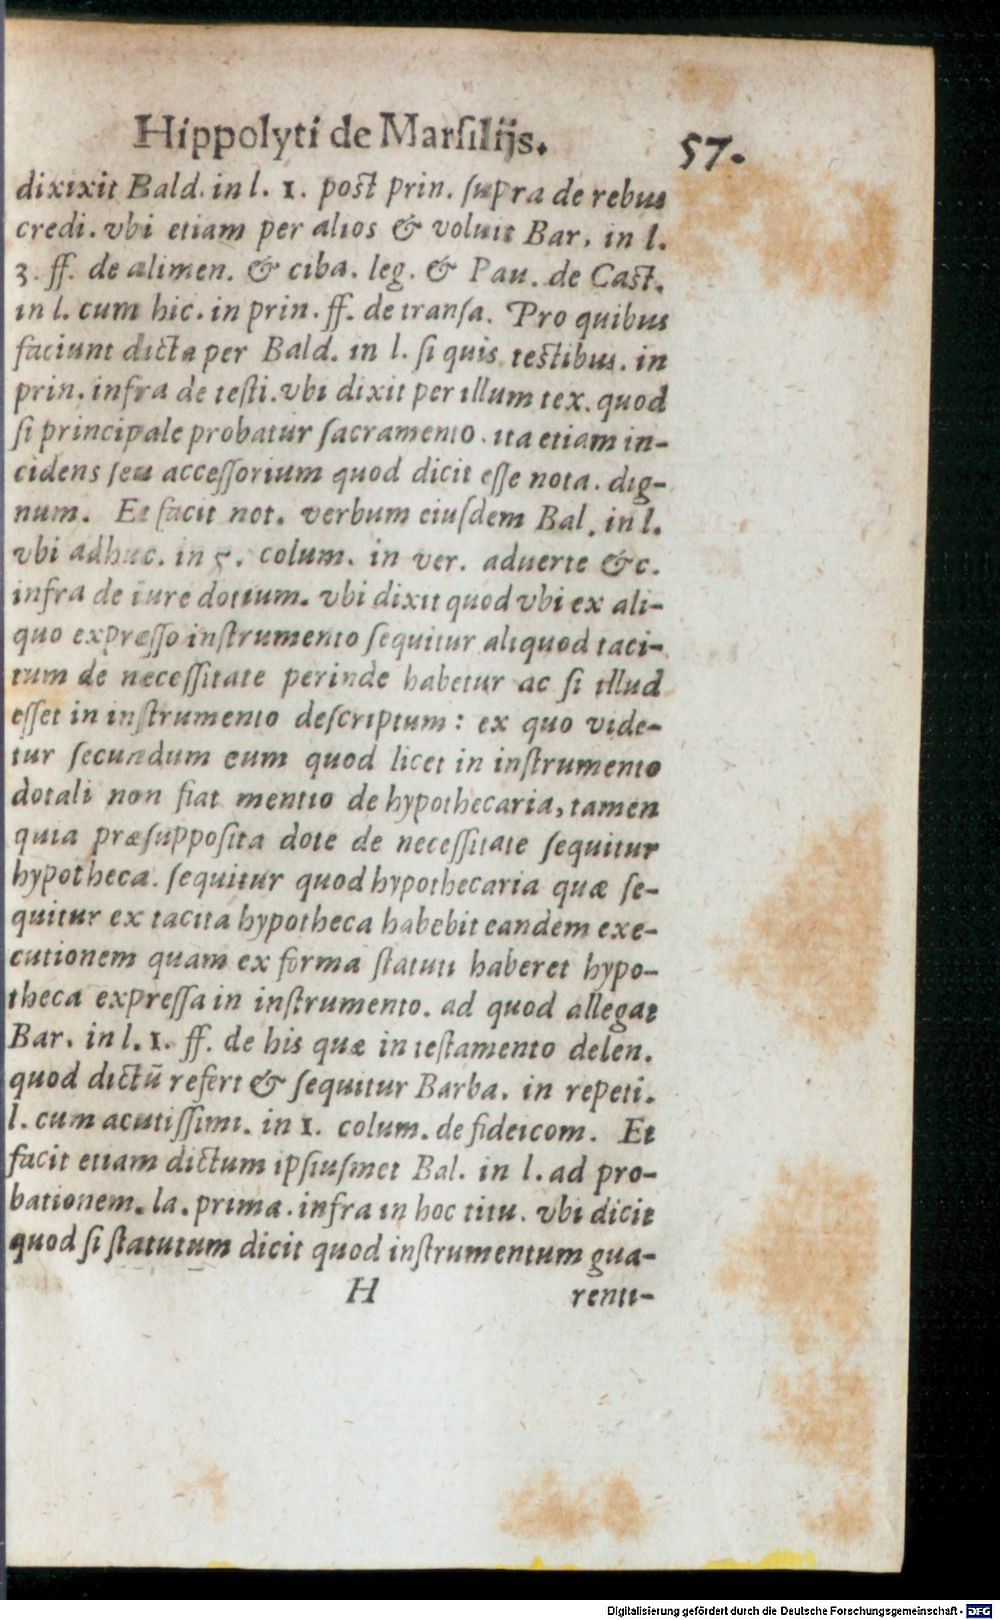 Hippolyti de Marſilijs. 57.
dixixit Bald. in l. 1. poſt prin. ſupra de rebus
credi. vbi etiam per alios & voluit Bar. in l.
3. ff. de alimen. & ciba. leg. & Pau. de Caſt.
in l. cum hic. in prin. ff. de tranſa. Pro quibus
faciunt dicta per Bald. in l. ſi quis teſtibus. in
prin. infra de teſti. vbi dixit per illum tex. quod
ſi principale probatur ſacramento. ita etiam in-
cidens ſeu acceſſorium quod dicit eſſe nota. dig-
num. Et facit not. verbum eiuſdem Bal. in l.
vbi adhuc. in 5. colum. in ver. aduerte &c.
infra de iure dotium. vbi dixit quod vbi ex ali-
quo expreſſo inſtrumento ſequitur aliquod taci-
tum de neceſſitate perinde habetur ac ſi illud
eſſet in inſtrumento deſcriptum: ex quo vide-
tur ſecundum eum quod licet in inſtrumento
dotali non fiat mentio de hypothecaria, tamen
quia præſuppoſita dote de neceſſitate ſequitur
hypotheca. ſequitur quod hypothecaria quæ ſe-
quitur ex tacita hypotheca habebit eandem exe-
cutionem quam ex forma ſtatuti haberet hypo-
theca expreſſa in inſtrumento. ad quod allegat
Bar. in l. 1. ff. de his quæ in teſtamento delen.
quod dictũ refert & ſequitur Barba. in repeti.
l. cum acutiſſimi. in 1. colum. de fideicom. Et
facit etiam dictum ipſiuſmet Bal. in l. ad pro-
bationem. la. prima. infra in hoc titu. vbi dicit
quod ſi ſtatutum dicit quod inſtrumentum gua-
H renti-
Digitalisierung gefördert durch die Deutsche Forschungsgemeinschaft - DFG